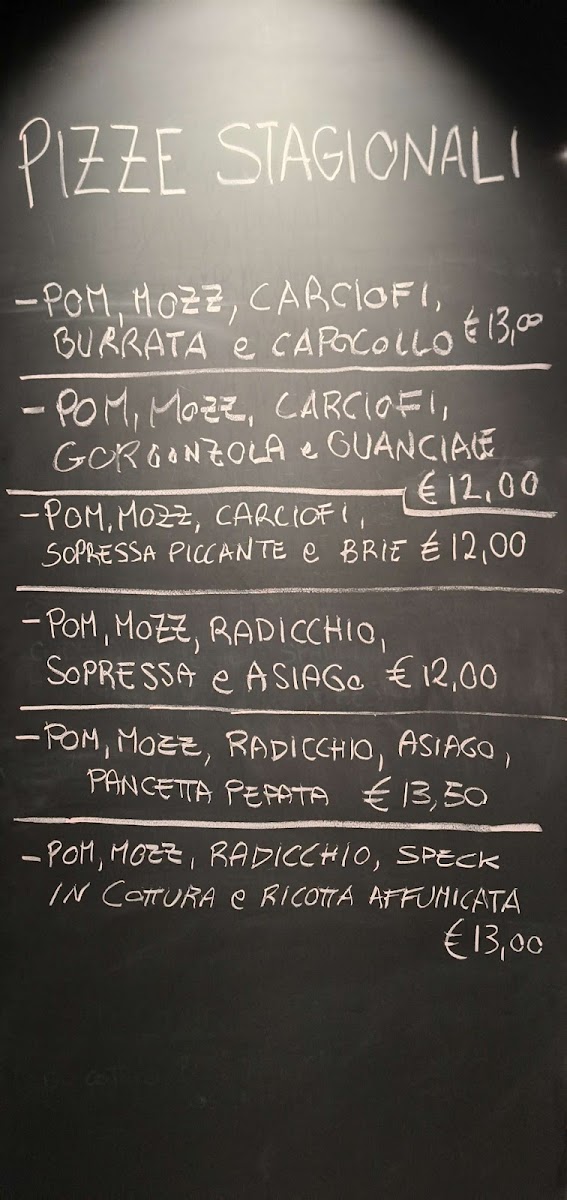 PIZZE STAGIONALI
- POM, MOZZ, CARCIOFI,
BURRATA e CAPOCOLLO € 13,00
- POM, MOZZ, CARCIOFI,
GORGONZOLA e GUANCIALE
€ 12,00
- POM, MOZZ, CARCIOFI,
SOPRESSA PICCANTE e BRIE € 12,00
- POM, MOZZ, RADICCHIO,
SOPRESSA e ASIAGO € 12,00
- POM, MOZZ, RADICCHIO, ASIAGO,
PANCETTA PEPATA € 13,50
- POM, MOZZ, RADICCHIO, SPECK
IN COTTURA e RICOTTA AFFUMICATA
€ 13,00